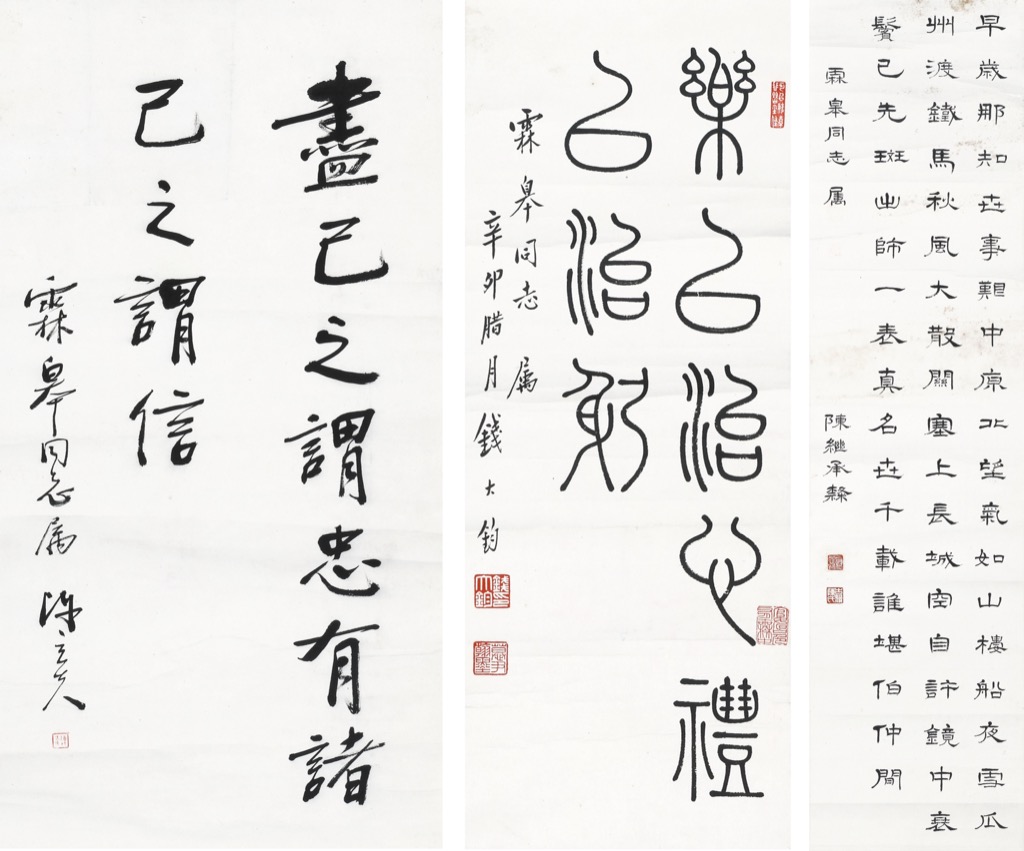 早歲那知世事艱中原北望氣如山樓船夜雪瓜
州渡鐵馬秋風大散關塞上長城空自許鏡中衰
鬢已先斑出師一表真名世千載誰堪伯仲間
霖皋同志属 陳繼承隸
樂以治心禮
以治躬
霖皋同志属
辛卯腊月錢大鈞
盡己之謂忠有諸
己之謂信
霖皋同志属 陳立夫